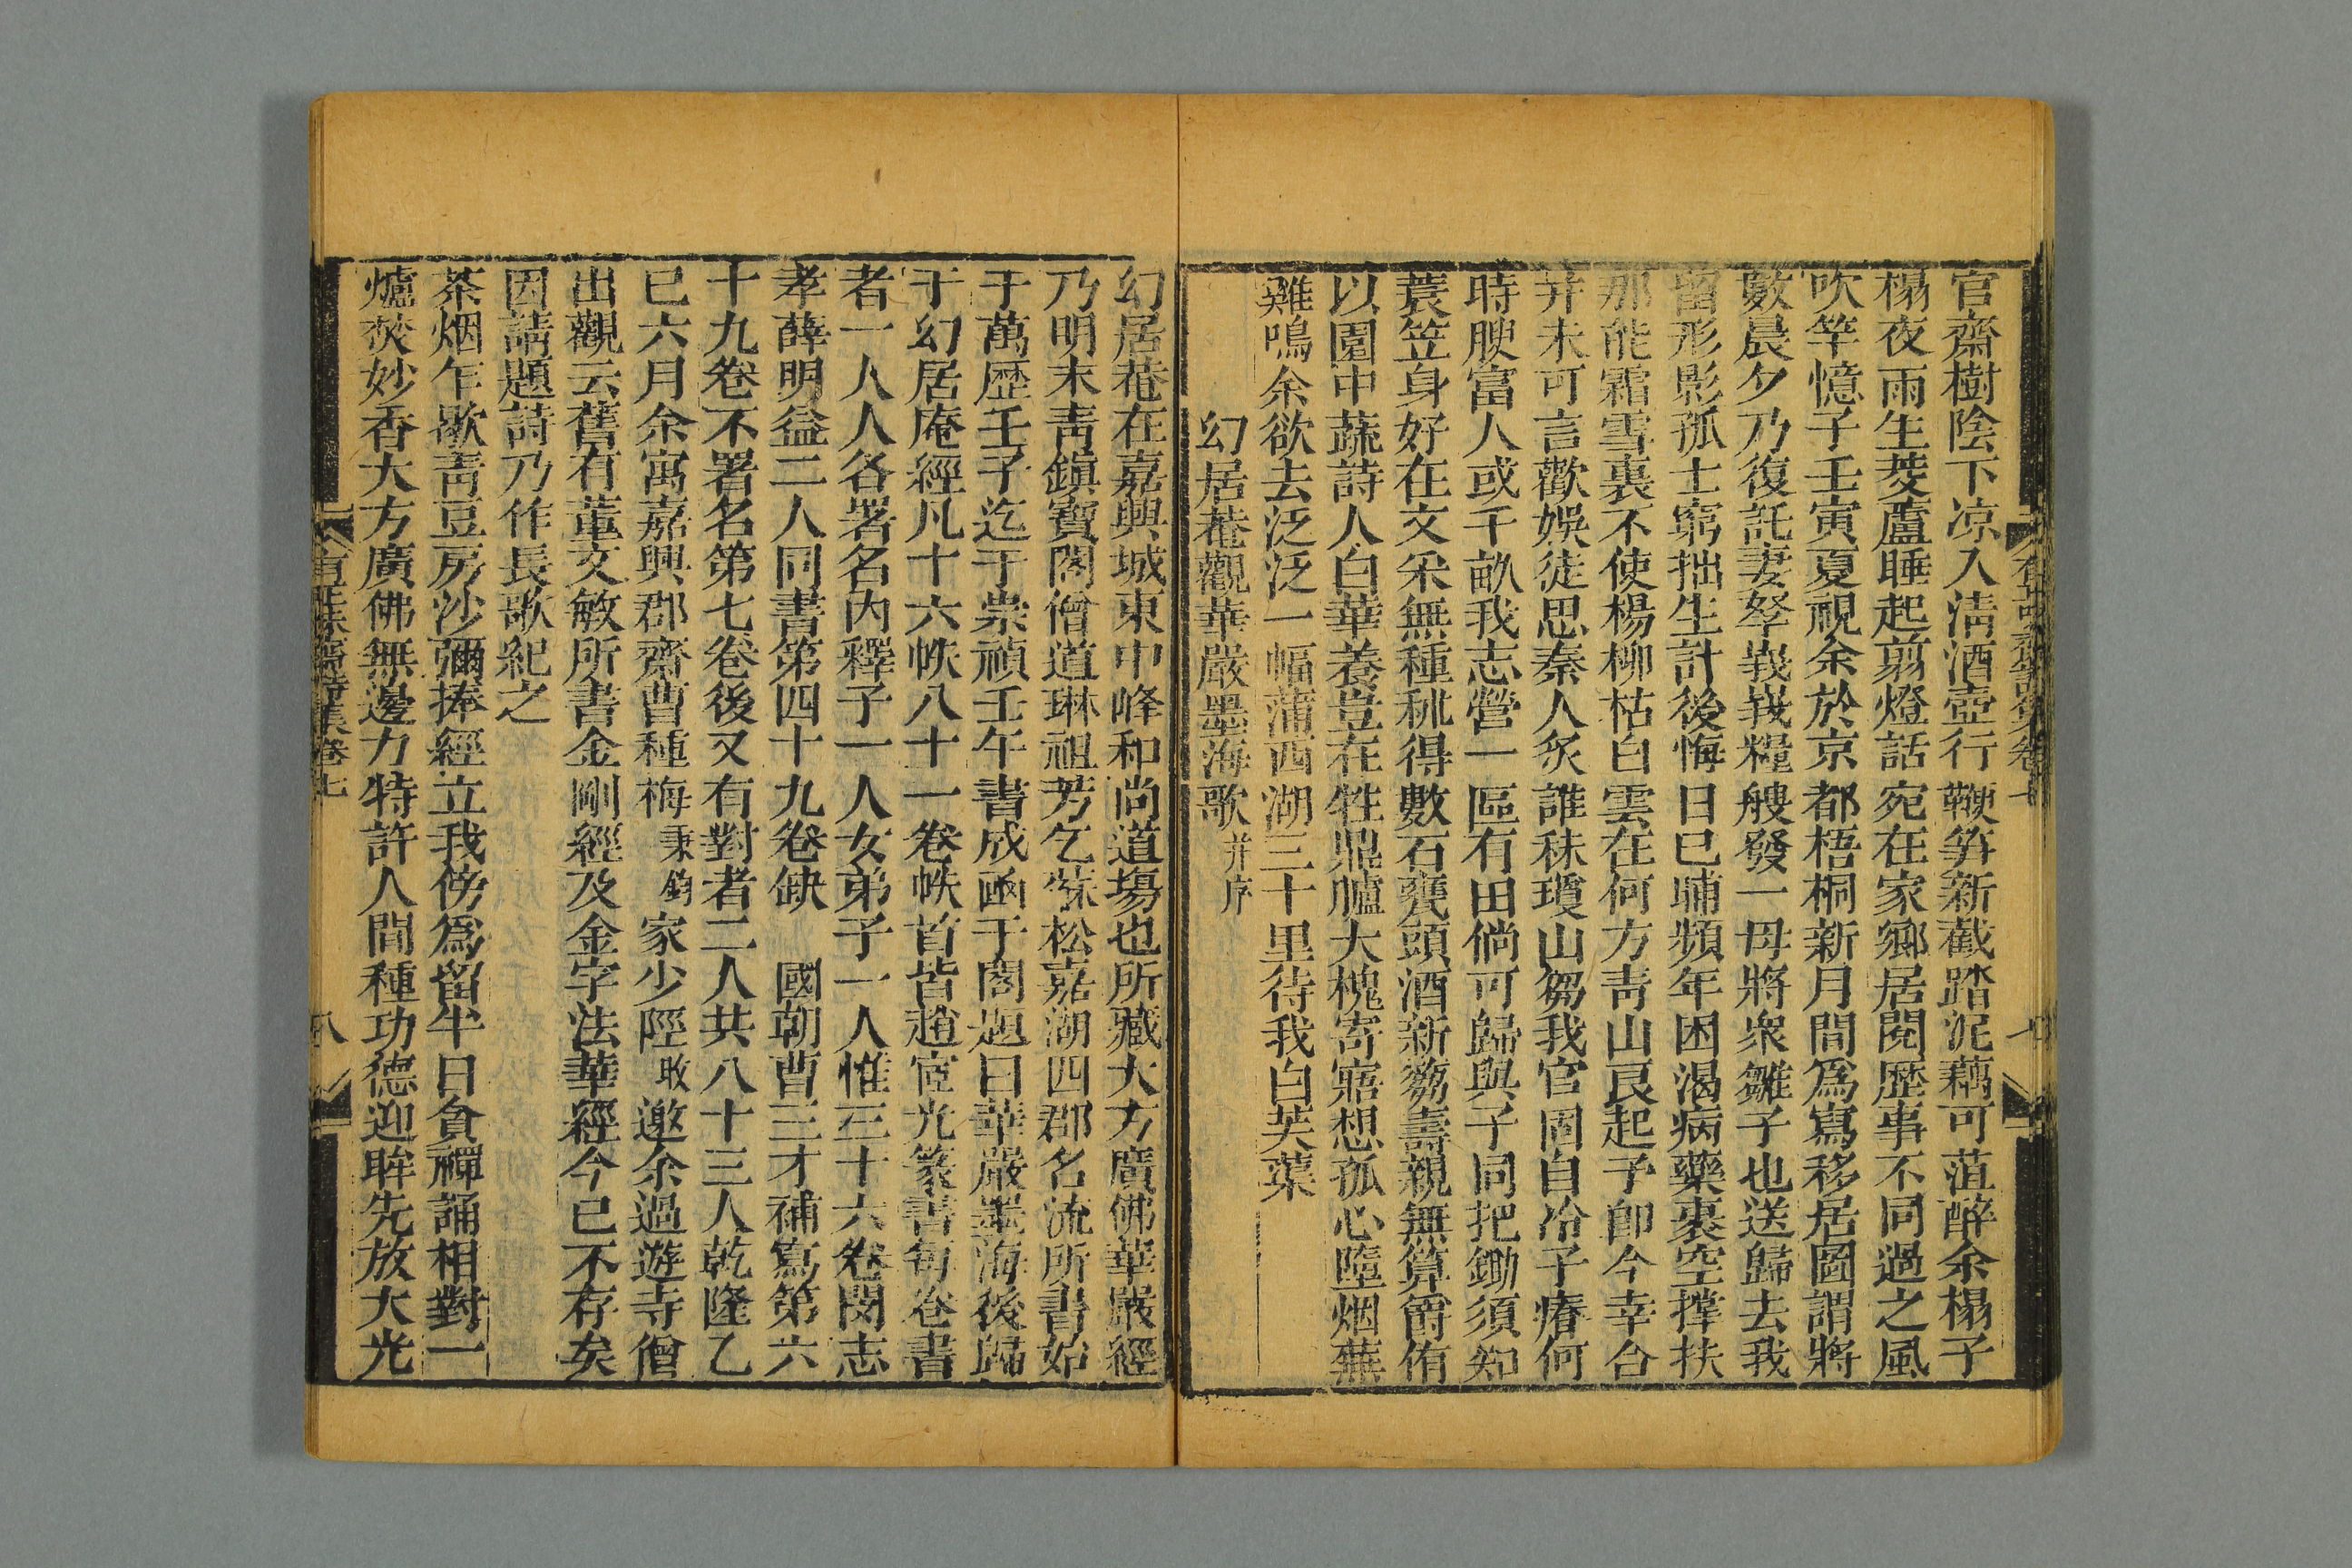 官齋樹陰下凉入清酒壺行鞭笋新截踏泥藕可菹醉余榻子
榻夜雨生菱蘆睡起剪燈話宛在家鄉居閱歷事不同過之風
吹竿憶子壬寅夏視余於京都梧桐新月間爲寫移居圖謂將
數晨夕乃復託妻孥峩峩糧艘發一母將衆雛子也送歸去我
留形影孤士窮拙生計後悔日已晡頻年困渴病藥裹空撑扶
那能霜雪裏不使楊柳枯白雲在何方靑山艮起予卽今幸合
并未可言歡娛徒思秦人炙誰秣瓊山芻我官固自冷子瘠何
時腴富人或千畝我志營一區有田倘可歸與子同把鋤須知
蓑笠身好在文采無種秫得數石甕頭酒新篘壽親無算爵侑
以園中蔬詩人白華養豈在牲鼎臚大槐寄寤想孤心墮烟蕪
雞鳴余欲去泛泛一幅蒲西湖三十里待我白芙蕖
幻居菴觀華嚴墨海歌并序
幻居菴在嘉興城東中峰和尚道塲也所藏大方廣佛華嚴經
乃明末靑鎭寶閣僧道琳祖芳乞蘇松嘉湖四郡名流所書始
于萬歷壬子迄于崇禎壬午書成函于閣題曰華嚴墨海後歸
于幻居庵經凡十六帙八十一卷帙首皆趙宧光篆書每卷書
者一人人各署名内釋子一人女弟子一人惟三十六卷閔志
孝薛明益二人同書第四十九卷缺 國朝曹三才補寫第六
十九卷不署名第七卷後又有對者二人共八十三人乾隆乙
巳六月余寓嘉興郡齋曹種梅秉鈞家少陘敢邀余過遊寺僧
出觀云舊有董文敏所書金剛經及金字法華經今已不存矣
因請題詩乃作長歌紀之
茶烟乍歇靑豆房沙彌捧經立我傍爲留半日貪禪誦相對一
爐焚妙香大方廣佛無邊力特許人間種功德迎眸先放大光
八